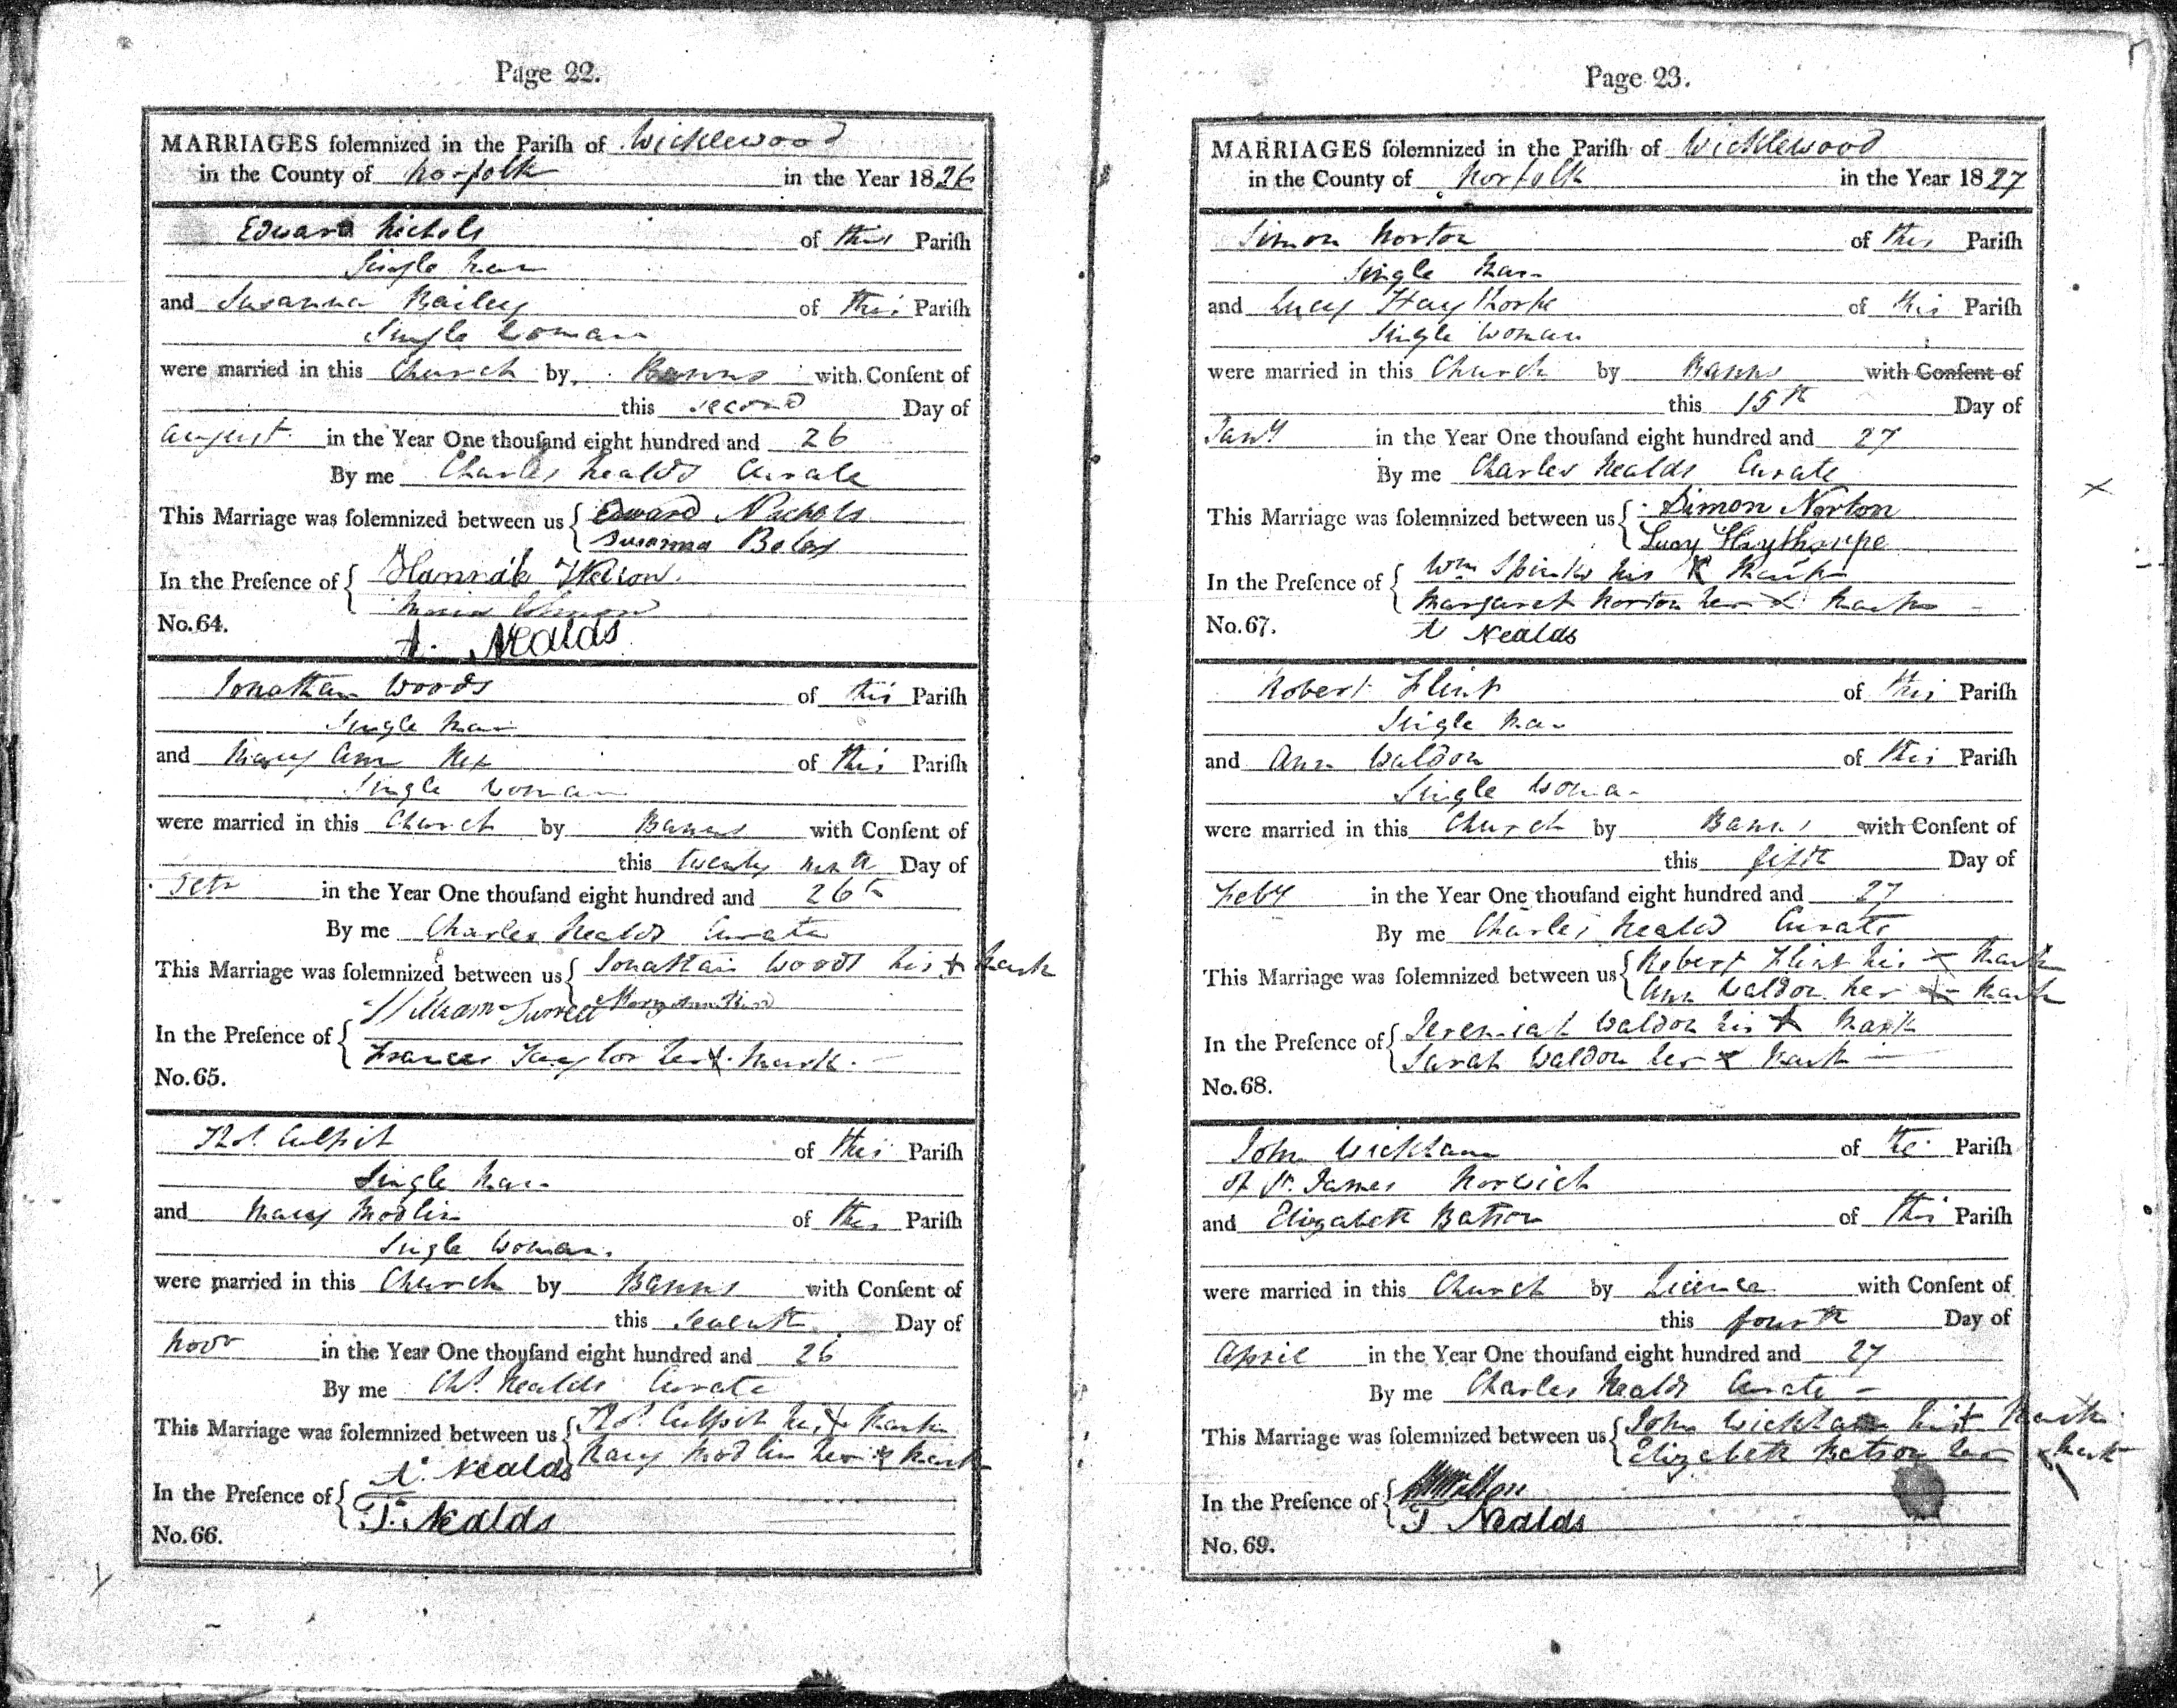 Page 22.
MARRIAGES ſolemnized in the Pariſh of Wicklewood
in the County of Norfolk in the Year 1826
Edward Nichols of this Pariſh
Single Man
and Susanna Bailey of this Pariſh
Single Woman
were married in this Church by Banns with Conſent of
this second Day of
August in the Year One thouſand eight hundred and 26
By me Charles Nealds Curate
This Marriage was ſolemnized between us { Edward Nichols
Susanna
In the Preſence of { Hannah
No. 64.
A. Nealds
Jonathan Woods of this Pariſh
Single Man
and Mary Ann of this Pariſh
Single Woman
were married in this Church by Banns with Conſent of
this twenty Day of
in the Year One thouſand eight hundred and 26th
By me Charles Nealds Curate
This Marriage was ſolemnized between us { Jonathan Woods his + Mark
Mary Ann
William Turrell
In the Preſence of {
Frances Taylor her x Mark.
No. 65.
Thos. Culpit of this Pariſh
Single Man
and Mary Modlin of this Pariſh
Single Woman.
were married in this Church by Banns with Conſent of
this Seventh Day of
Novr in the Year One thouſand eight hundred and 26
By me Chs. Nealds Curate
This Marriage was ſolemnized between us { Thos. Culpit his x Mark
Mary Modlin her x Mark
A. Nealds
In the Preſence of {
T. Nealds
No. 66.
Page 23.
MARRIAGES ſolemnized in the Pariſh of Wicklewood
in the County of Norfolk in the Year 1827
Simon Norton of this Pariſh
Single Man
and Lucy Haythorpe of this Pariſh
Single Woman
were married in this Church by Banns with Conſent of
this 15th Day of
Jany in the Year One thouſand eight hundred and 27
By me Charles Nealds Curate
This Marriage was ſolemnized between us { Simon Norton
Lucy Haythorpe
In the Preſence of { Wm Spinks his X Mark
Margaret Norton her x Mark
No. 67.
A Nealds
Robert Flint of this Pariſh
Single Man
and Ann Waldon of this Pariſh
Single Woman
were married in this Church by Banns with Conſent of
this fifth Day of
Feby in the Year One thouſand eight hundred and 27
By me Charles Nealds Curate
This Marriage was ſolemnized between us { Robert Flint his x Mark
Ann Waldon her x Mark
In the Preſence of { Jeremiah Waldon his + Mark
Sarah Waldon her x Mark
No. 68.
John Wickham of the Pariſh
of St. James Norwich
and Elizabeth Batson of this Pariſh
were married in this Church by Licence with Conſent of
this fourth Day of
April in the Year One thouſand eight hundred and 27
By me Charles Nealds Curate
This Marriage was ſolemnized between us { John Wickham his + Mark
Elizabeth Batson her x Mark
In the Preſence of {
T Nealds
No. 69.